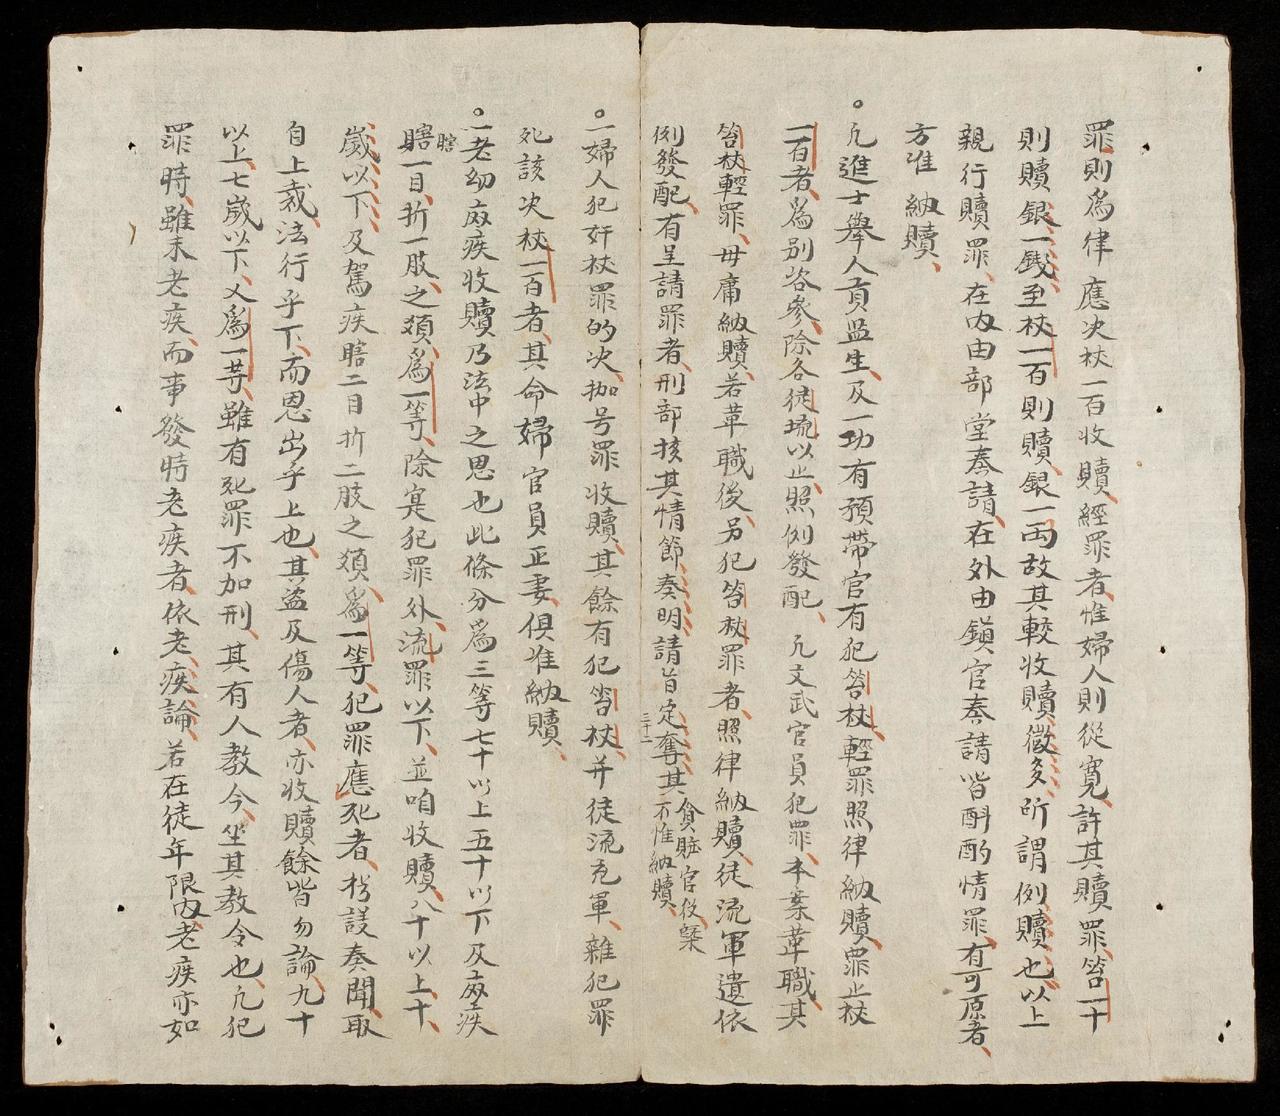 罪則為律應决杖一百收贖、經罪者、惟婦人則從寬、許其贖罪、笞一十
則贖銀一錢、至杖一百則贖銀一両、故其較收贖徵多、所謂例贖也、以上
親行贖罪、在內由部堂奏請、在外由鎮官奏請皆酙酌情罪、有可原者、
方准納贖、
凢進士舉人貢监生、及一功有預帶官有犯笞杖、輕罪照律納贖、罪止杖
一百者、為別咨參、除各徒㳅以止照例發配、凢文武官員犯罪、本案革職、其
笞杖輕罪、毋庸納贖、若革職後、另犯笞杖罪者、照律納贖、徒流軍遺依
例發配、有呈請罪者、刑部核其情節、奏明請旨定奪、其貪賍官役槩不惟納贖、
三十二
一婦人犯奸杖罪的决、枷号罪收贖、其餘有犯笞杖、并徒流充軍、雜犯罪
死該决杖一百者、其命婦官員正妻、俱准納贖、
一老幼廢疾收贖乃法中之恩也此條分為三等七十以上五十以下及廢疾
瞎一目、折一肢、之類、為一等、除寔犯罪外、流罪以下、並咱收贖、八十以上、十、
瞎
歲以下、及篤疾瞎二目折二肢之類、為一等、犯罪應死者、拟議奏聞、取
自上裁、法行乎下、而恩出乎上也、其盜及傷人者、亦收贖餘皆勿論、九十
以上、七歲以下、又為一等、雖有死罪不加刑、其有人教令、坐其教令也、凢犯
罪時、雖末老疾、而事發時老疾者、依老疾論、若在徒年限內、老疾亦如